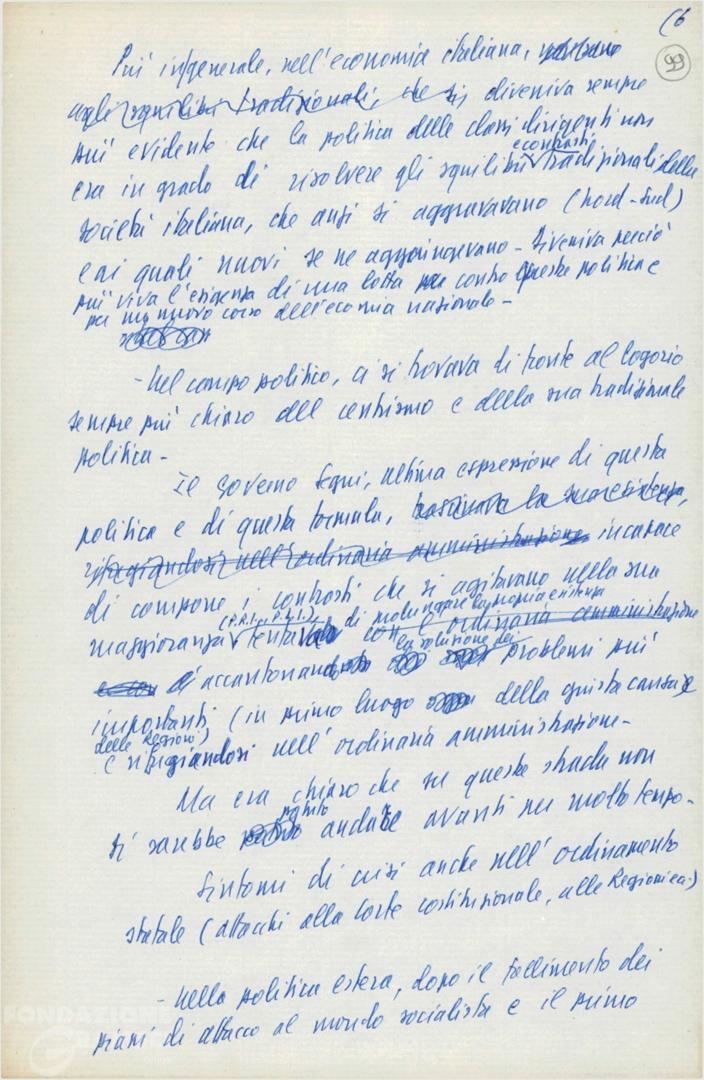 (6
99
Più in generale, nell'economia italiana,
agli squilibri tradizionali, che si diveniva sempre
più evidente che la politica delle classi dirigenti non
e contrasti
era in grado di risolvere gli squilibri tradizionali della
società italiana, che anzi si aggravavano (Nord-Sud)
e ai quali nuovi se ne aggiungevano - Diveniva perciò
più viva l'esigenza di una lotta contro queste politiche
per un nuovo corso dell'ecomia nazionale -
- Nel campo politico, ci si trovava di fronte al logorio
sempre più chiaro del centrismo e della sua tradizionale
politica -
Il governo Segni, ultima espressione di questa
politica e di questa formula, trascinava la sua esistenza,
rifugiandosi nell'ordinaria amministrazione incapace
di comporre i contrasti che si agitavano nella sua
(P.R.I. e P.L.I.), di prolungare la propria esistenza
maggioranza tentava con l'ordinaria amministrazione
la soluzione dei
accantonando problemi più
importanti (in primo luogo della giusta causa e
delle Regioni)
e rifugiandosi nell'ordinaria amministrazione -
Ma era chiaro che su queste strada non
potuto
si sarebbe andare avanti per molto tempo -
Sintomi di crisi anche nell'ordinamento
statale (attacchi alla Corte costituzionale, alle Regioni ecc.)
- Nella politica estera, dopo il fallimento dei
piani di attacco al mondo socialista e il primo
FONDAZIONE